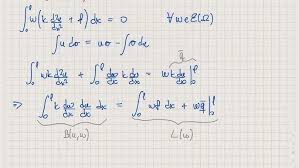 ∫₀ˡ w(k d²u/dx² + f) dx = 0 ∀w∈ℰ(Ω)
∫u dv = uv − ∫v du
∫₀ˡ wk d²u/dx² + ∫₀ˡ dw/dx k du/dx = wk du/dx |₀ˡ
q̄
⇒ ∫₀ˡ k dw/dx du/dx dx = ∫₀ˡ wf dx + wq̄ |₀ˡ
B(u,w) L(w)